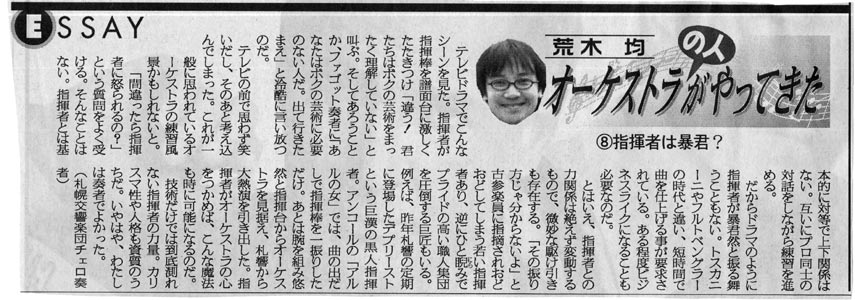 ESSAY
荒木 均
オーケストラの人がやってきた
⑧指揮者は暴君?
テレビドラマでこんな
シーンを見た。指揮者が
指揮棒を譜面台に激しく
たたきつけ「違う! 君
たちはボクの芸術をまっ
たく理解していない」と
叫ぶ。そしてあろうこと
か、ファゴット奏者に「あ
なたはボクの芸術に必要
のない人だ。出て行きた
まえ」と冷酷に言い放つ
のだ。
テレビの前で思わず笑
いだし、そのあと考え込
んでしまった。これが一
般に思われているオ
ーケストラの練習風
景かもしれないと。
「間違ったら指揮
者に怒られるの?」
という質問をよく受
ける。そんなことは
ない。指揮者とは基
本的に対等で上下関係は
ない。互いにプロ同士の
対話をしながら練習を進
める。
だからドラマのように
指揮者が暴君然と振る舞
うこともない。トスカニ
ーニやフルトベングラー
の時代と違い、短時間で
曲を仕上げる事が要求さ
れている。ある程度ビジ
ネスライクになることも
必要なのだ。
とはいえ、指揮者との
力関係は絶えず変動する
もので、微妙な駆け引き
も存在する。「その振り
方じゃ分からないよ」と
古参楽員に指摘されおど
おどしてしまう若い指揮
者あり、逆にひと睨みで
プライドの高い職人集団
を圧倒する巨匠もいる。
例えば、昨年札響の定期
に登場したデプリースト
という巨漢の黒人指揮
者。アンコールの「アル
ルの女」では、曲の出だ
しで指揮棒を一振りした
だけ。あとは腕を組み悠
然と指揮台からオーケス
トラを見据え、札響から
大熱演を引き出した。指
揮者がオーケストラの心
をつかめば、こんな魔法
も時に可能になるのだ。
技術だけでは到底測れ
ない指揮者の力量。カリ
スマ性や人格も資質のう
ちだ。いやはや、わたし
は奏者でよかった。
(札幌交響楽団チェロ奏
者)